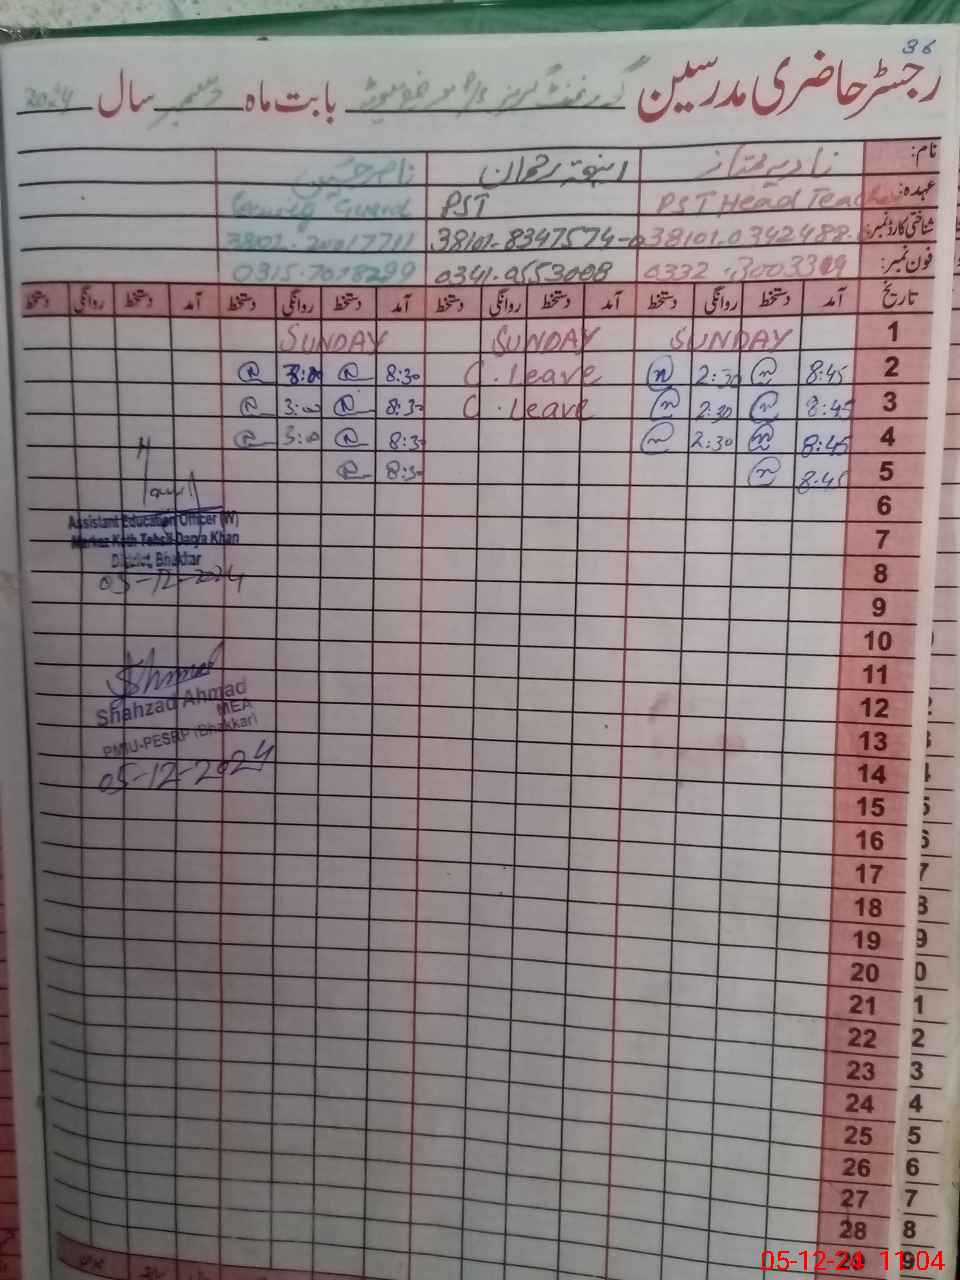 36
رجسٹر حاضری مدرسین گورنمنٹ گرلز بابت ماہ دسمبر سال 2024
نام: نادیہ ممتاز رحمان ناصر حسین
عہدہ: PST Head Teacher PST Guard
شناختی کارڈ نمبر: 38101-0342488 38101-8347574-0
فون نمبر: 0332 0341-0553008
تاریخ آمد دستخط روانگی دستخط آمد دستخط روانگی دستخط آمد دستخط روانگی دستخط دستخط روانگی دستخط
1 SUNDAY SUNDAY SUNDAY
2 8:45 2:30 C. Leave 8:30 3:00
3 8:45 2:30 C. Leave 8:30 3:00
4 8:45 2:30 8:30 3:00
5 8:45 8:30
6
7
8
9
10
11
12
13
14
15
16
17
18
19
20
21
22
23
24
25
26
27
28
29
Assistant Education Officer (W)
Markaz Kath Tehsil Darya Khan
District Bhakkar
05-12-2024
Shahzad Ahmad
MEA
PMIU-PESRP (Bhakkar)
05-12-2024
05-12-24 11:04